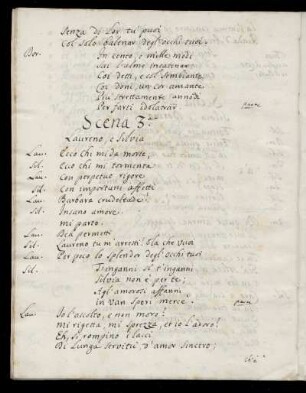 Senza di lor tu puoi
Col solo balenar degl'occhi tuoi.
Bor. In cento, e mille modi
Sai l'alme incatenar
Coi detti, e col sembiante
Coi doni, un cor amante
Più strettamente annodi
Per farti idolatrar parte
Scena 3.za
Laureno, e Silvia
Lau. Ecco chi mi dà morte,
Sil. Ecco chi mi tormenta
Lau. Con perpetuo rigore
Sil. Con importuni affetti
Lau. Barbara crudeltade.
Sil. Insano amore.
mi parto.
Lau. Deh permetti
Sil. Laureno tu m'arresti? Olà che vuoi
Lau. Per poco lo splendor degl'occhi tuoi
Sil. T'inganni sì t'inganni
Silvia non è per te;
Agl'amorosi affanni
In van speri mercè. parte
Lau. Io l'ascolto, e non moro?
Mi rigetta, mi sprezza, et io l'adoro?
Eh, si rompino i lacci
Di lunga servitù d'amor sincero;